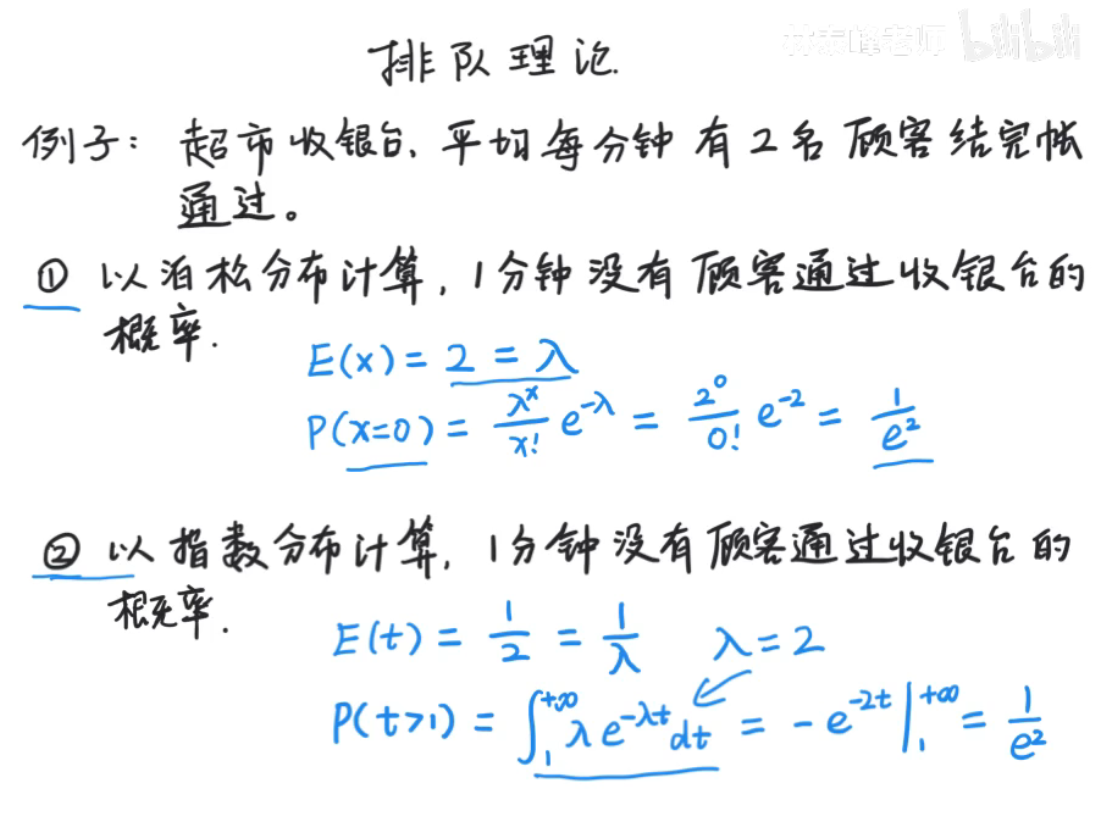 林泰峰老师 bilibili
排队理论.
例子: 超市收银台、平均每分钟有2名顾客结完帐
通过。
① 以泊松分布计算, 1分钟没有顾客通过收银台的
概率.
E(x) = 2 = λ
P(x=0) = λ^x/x! e^-λ = 2^0/0! e^-2 = 1/e^2
② 以指数分布计算, 1分钟没有顾客通过收银台的
概率.
E(t) = 1/2 = 1/λ λ=2
P(t>1) = ∫_1^+∞ λe^-λt dt = -e^-2t |_1^+∞ = 1/e^2